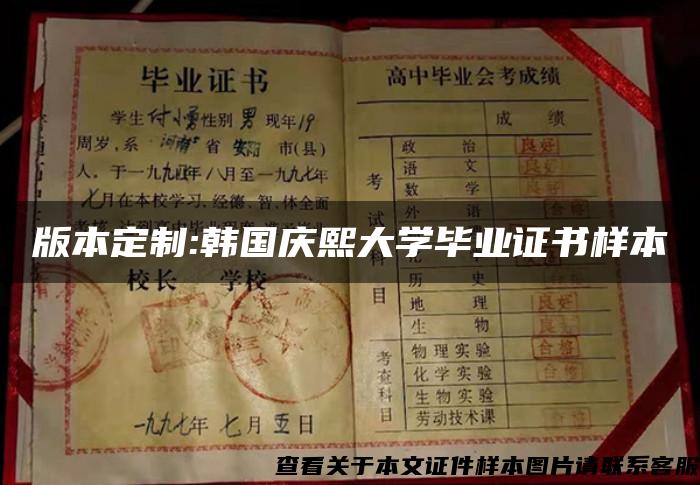 毕业证书
学生付小勇性别男现年19
周岁,系河南省安阳市(县)
人。于一九九四年八月至一九九七年
七月在本校学习,经德、智、体全面
校长 学校
一九九七年七月五日
高中毕业会考成绩
成绩
考试科目
政治 良好
语文 良好
数学 良好
外语
历史 良好
地理 良好
生物 良好
考查科目
物理实验 合格
化学实验 合格
生物实验
劳动技术课 合格
版本定制:韩国庆熙大学毕业证书样本
查看关于本文证件样本图片请联系客服